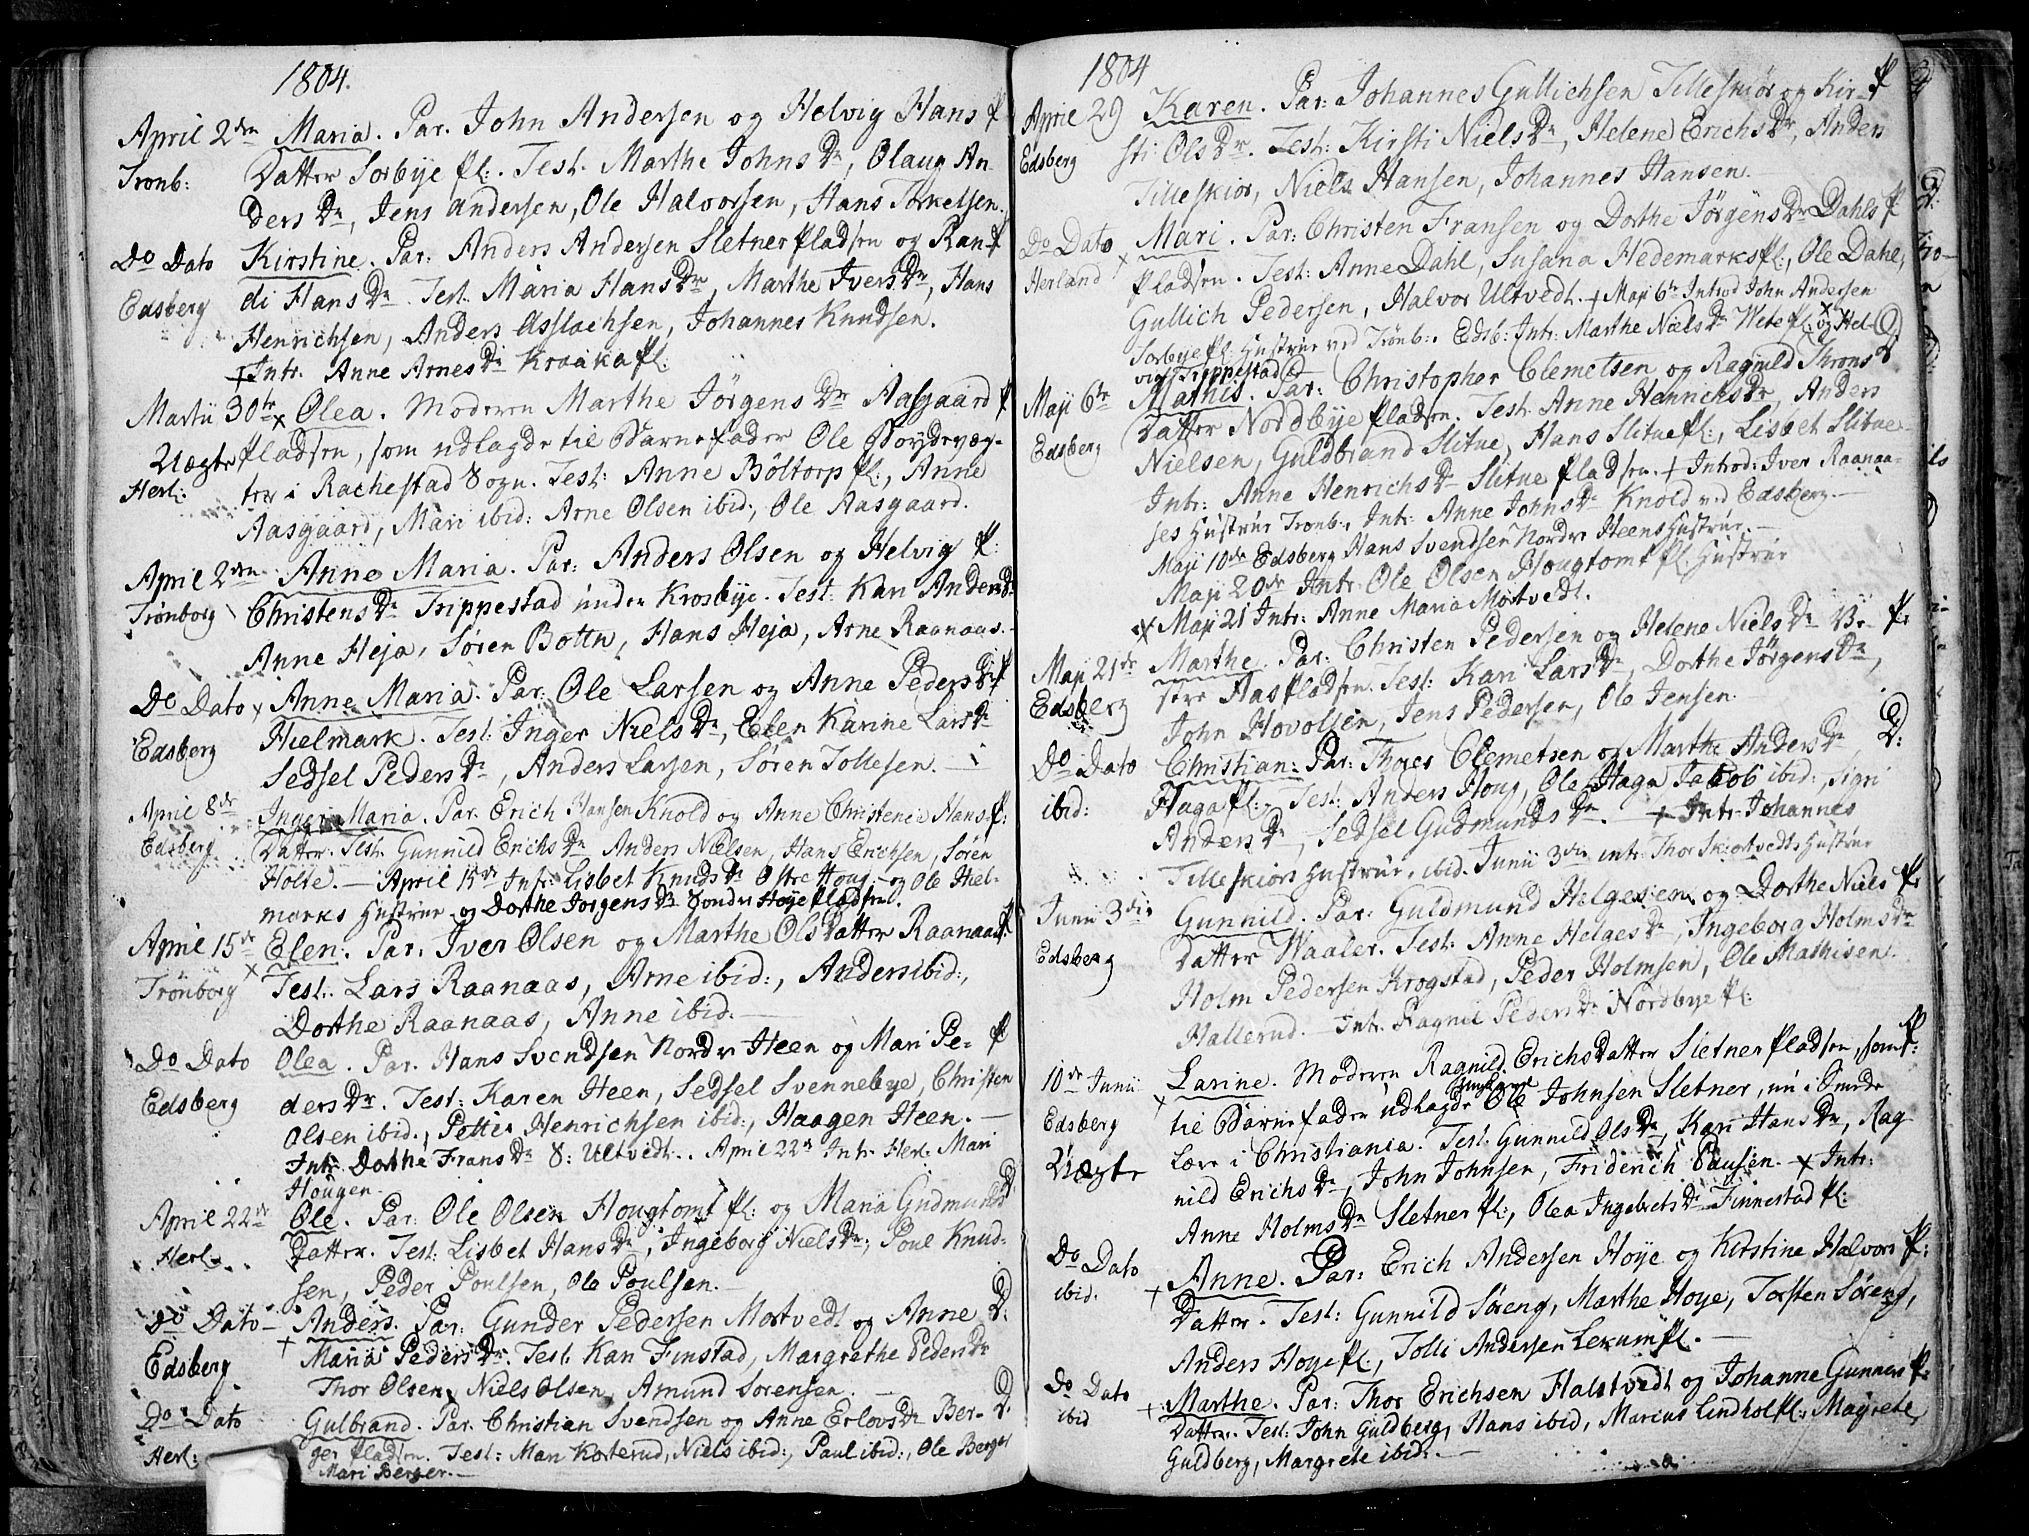 1804.
April 2den Maria. Par. John Andersen og Helvig Hans p
Trønb: Datter Sorbye pl:. Test. Marthe Johns Dr, Olaug An-
ders Dr, Jens Andersen, Ole Halvorsen, Hans Torkelsen.
Do Dato Kirstine. Par: Anders Andersen Sletner pladsen og Ran- p
Edsberg di Hans Dr. Test. Maria Hans Dr, Marthe Ivers Dr, Hans
Henrichsen, Anders Asslachsen, Johannes Knudsen.
+ Intr. Anne Arnes Dr Kraaka pl:
Martii 30te x Olea. Moderen Marthe Jørgens Dr Aasgaard p
Uægte pladsen, som udlagde til Barnefader Ole
Herl: ter i Rachestad Sogn. Test: Anne Böltorp pl:, Anne
Aasgaard, Mari ibid: Arne Olsen ibid:, Ole Aasgaard.
April 2den Anne Maria. Par: Anders Olsen og Helvig p:
Trønborg Christens Dr Trippestad under Krosbye. Test: Kari Anders Dr
Anne Heja, Søren Botten, Hans Heja, Arne Raanaas.
Do Dato x Anne Maria. Par: Ole Larsen og Anne Peders Dr p
Edsberg Hielmark. Test: Inger Niels Dr, Elen Karine Lars Dr
Sedsel Peders Dr, Anders Larsen, Søren Tollesen.
April 8de Inger Maria. Par. Erich Hansen Knold og Anne Christene Hans- p:
Edsberg Datter. Test. Gunnild Erichs Dr Anders Nielsen, Hans Erichsen, Søren
Holte. — April 15de Intr: Lisbet Knuds Dr Østre Houg - og Ole Hiel-
marks Hustrue og Dorthe Jorgens Dr Sonder Høye pladsen.
April 15de Elen. Par. Iver Olsen og Marthe Ols Datter Raanaas p
Trönborg x Test. Lars Raanaas, Arne ibid:, Anders ibid:,
Dorthe Raanaas, Anne ibid. —
Do Dato Olea. Par. Hans Svendsen Nordre Heen og Mari Pe- p
Edsberg ders Dr. Test: Karen Heen, Sedsel Svennebye, Christen
Olsen ibid:, Petter Henrichsen ibid:, Haagen Heen. —
Intr Dorthe Frans Dr S: Ultvedt. . April 22de Intr Herl. Mari
Hougen.
April 22de Ole. Par: Ole Olsen Hougtomt pl: og Maria Gudmunds D
Herl. Datter. Test: Lisbet Hans Dr, Ingeborg Niels Dr, Poul Knud-
sen, Peder Poulsen, Ole Poulsen.
Do Dato Anders. Par: Gunder Pedersen Mortvedt og Anne D:
Edsberg + Maria Peders Dr. Test: Kari Finstad, Margrethe Peders Dr
Thor Olsen, Niels Olsen, Amund Sorensen. —
Do Dato Gulbrand. Par. Christian Svendsen og Anne Erlovs Dr Ber- D.
Herl: ger pladsen. Test: Mari Korterud, Niels ibid:, Paul ibid:, Ole Berger
Mari Berger. —
1804
April 29 Karen. Par: Johannes Gullichsen Tilleskiör og Kir- p
Edsberg sti Ols Dr. Test: Kirsti Niels Dr, Helene Erichs Dr, Anders
Tilleskiör, Niels Hansen, Johannes Hansen.
Do Dato Mari. Par: Christen Fransen og Dorthe Jörgens Dr Dahls p
Herland x pladsen. Test: Anne Dahl, Susana Hedemarks pl:, Ole Dahl,
Gullich Pedersen, Halvor Ultvedt. + Maji 6te Introd John Andersen
Sorbye pl: Hustrue ved Trönb:. Edsb: Intr: Marthe Niels Dr Wete pl: x og Hel-
vig Trippestad
Maji 6te Mathis. Par: Christopher Clemetsen og Ragnild Throns D
Edsberg Datter Nordbye pladsen. Test. Anne Henrichs Dr, Anders
Nielsen, Guldbrand Slitue, Hans Slitue pl:, Lisbet Slitue
Intr: Anne Henrichs Dr Slitue pladsen. + Introd: Iver Raanaa-
ses Hustrue Tronb., Intr: Anne Johns Dr Knold ved Edsberg. —
Maji 10de Edsberg Hans Svendsen Nordre Heens Hustrue. —
Maji 20de Intr. Ole Olsen Hougtomt pl. Hustrue
x Maji 21 Intr: Anne Maria Mortvedt.
Maji 21de Marthe. Par: Christen Pedersen og Helene Niels Dr p:
Edsberg Aas pladsen. Test: Kari Lars Dr, Dorthe Jörgens Dr,
John Hovolsen, Jens Pedersen, Ole Jensen.
Do Dato Christian: Par: Thores Clemetsen og Marthe Anders Dr D:
ibid: Haga pl:. Test: Anders Houg, Ole Haga Jacob ibid:, Sigri
Anders Dr, Sedsel Gudmunds Dr. — + Intr. Johannes
Tilleskiörs Hustrue, ibid. Junii 3die intr. Thor Skiortvedts Hustrue
Junii 3die Gunnild. Par: Guldmund Helgesen og Dorthe Niels p:
Edsberg Datter Waaler. Test: Anne Helges Dr, Ingeborg Holms Dr
Holm Pedersen Krogstad, Peder Holmsen, Ole Mathisen.
Hallerud. — Intr. Ragnil Peders Dr Nordbye pl:
10de Junii Larine. Moderen Ragnild Erichs Datter Sletner pladsen, som p:
Edsberg x til Barnefader udlagde Ungkarl Ole Johnsen Sletner, nu i Smede
Uægte Lære i Christiania. Test: Gunnild Ols Dr, Kari Hans Dr, Rag
nild Erichs Dr, John Johnsen, Friderich Pausen. — x Intr:
Anne Holms Dr Sletner pl:, Olea Ingebrets Dr Finnestad pl:
Do Dato Anne. Par: Erich Andersen Hoye og Kirstine Halvors p:
ibid. + Datter. Test: Gunnild Søreng, Marthe Hoye, Torsten Søreng,
Anders Hoye pl, Tolli Andersen Lekum pl. —
Do Dato Marthe. Par: Thor Erichsen Halstvedt og Johanne Gunners p:
ibid + Datter. Test: John Guldberg, Hans ibid, Marius Lindhol pl: Magrete
Guldberg, Margrete ibid: —